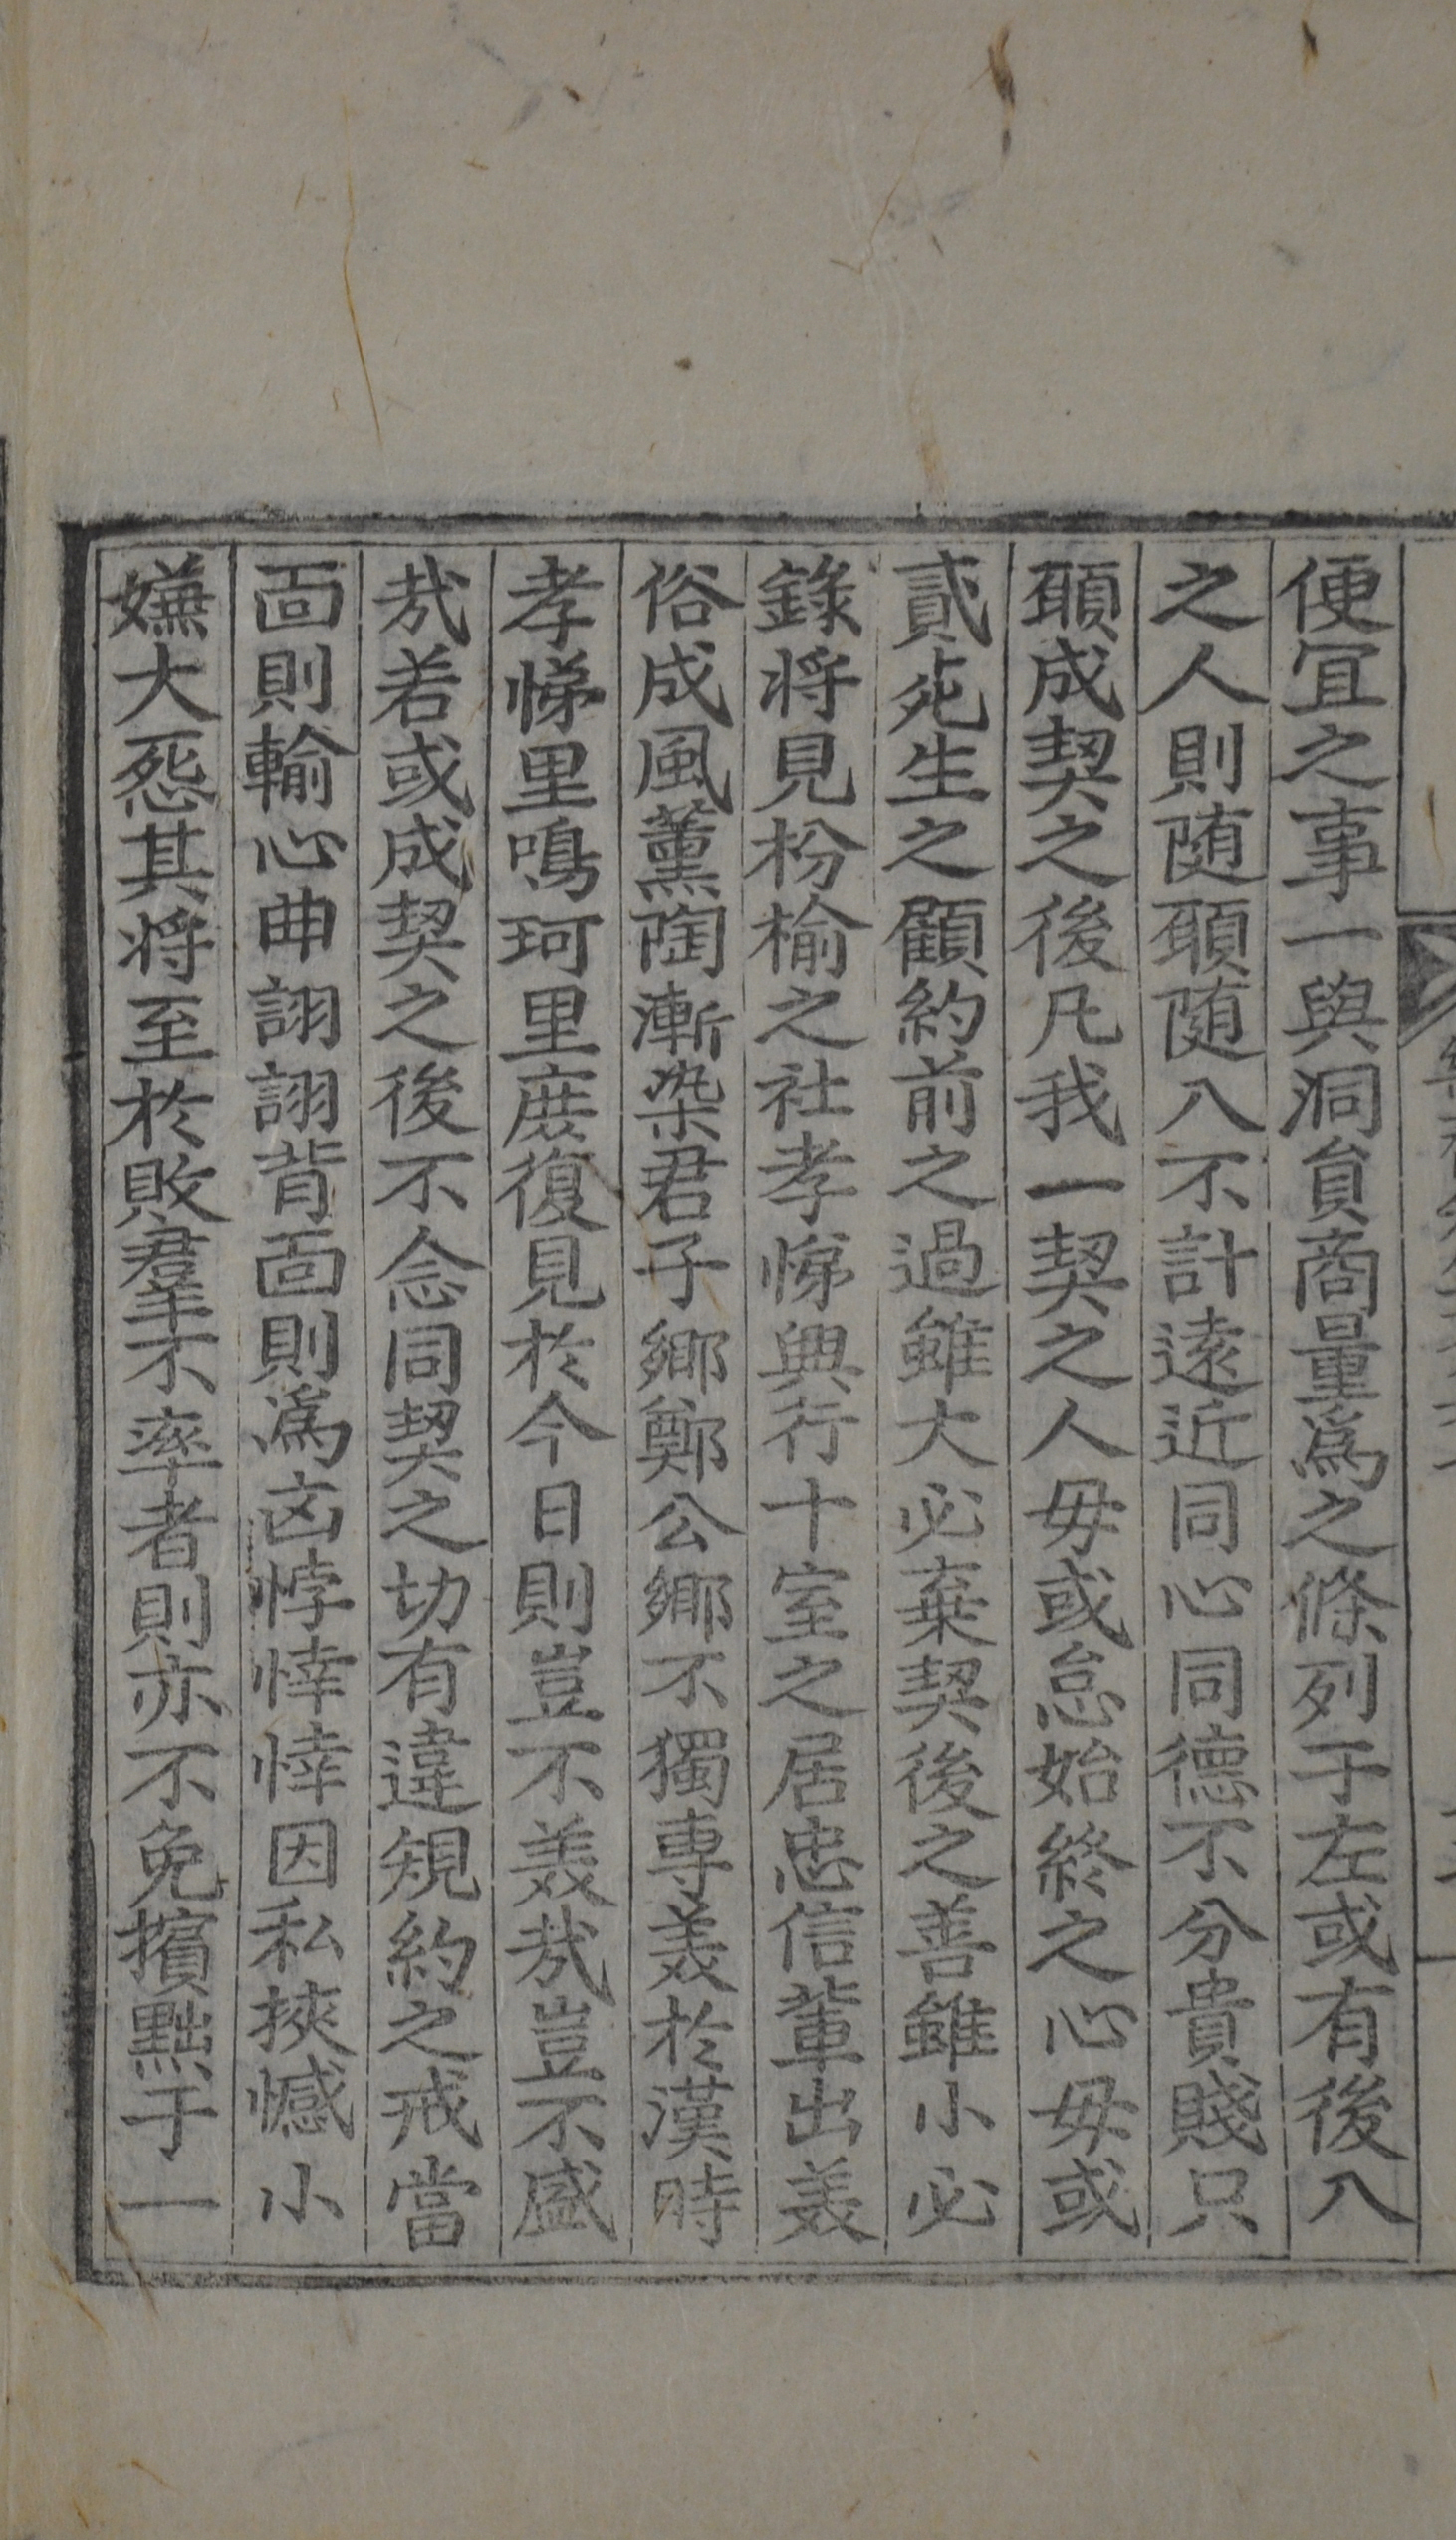 便宜之事一與洞負商量爲之條列于左或有後入
之人則随願随入不計遠近同心同德不分貴賤只
願成契之後凡我一契之人毋或怠始終之心毋或
貳死生之顧約前之過雖大必棄契後之善雖小必
錄将見枌楡之社孝悌興行十室之居忠信輩出美
俗成風薰陶漸染君子鄉鄭公鄉不獨專美於漢時
孝悌里鳴珂里庶復見於今日則豈不美㢤豈不盛
㢤若或成契之後不念同契之切有違規約之戒當
面則輸心曲詡詡背面則爲凶悖悻悻因私挾憾小
嫌大怨其将至於敗羣不率者則亦不免擯黜于一